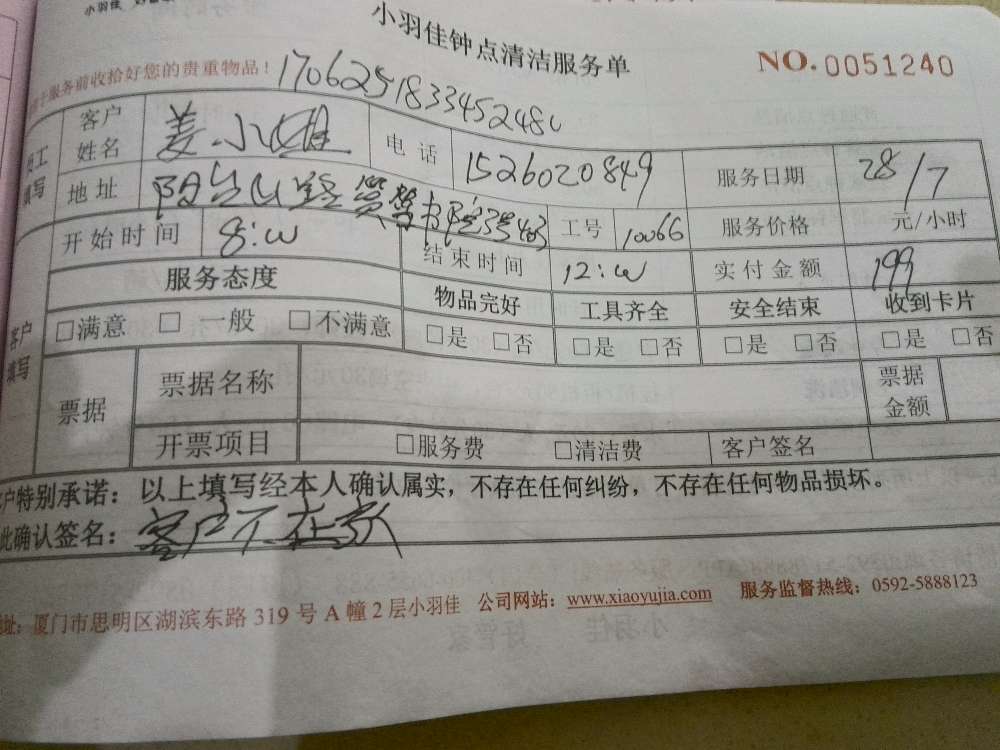 小羽佳
小羽佳钟点清洁服务单
NO.0051240
服务前收拾好您的贵重物品！
客户姓名 姜小姐 电话 1526020849 服务日期 28/7
地址 工号 10066 服务价格 元/小时
开始时间 8:00 结束时间 12:00 实付金额 199
服务态度 物品完好 工具齐全 安全结束 收到卡片
□满意 □一般 □不满意 □是 □否 □是 □否 □是 □否 □是 □否
客户填写
票据 票据名称 票据金额
开票项目 □服务费 □清洁费 客户签名
户特别承诺：以上填写经本人确认属实，不存在任何纠纷，不存在任何物品损坏。
此确认签名：客户不在家
址：厦门市思明区湖滨东路 319 号 A 幢 2 层小羽佳 公司网站：www.xiaoyujia.com 服务监督热线：0592-5888123